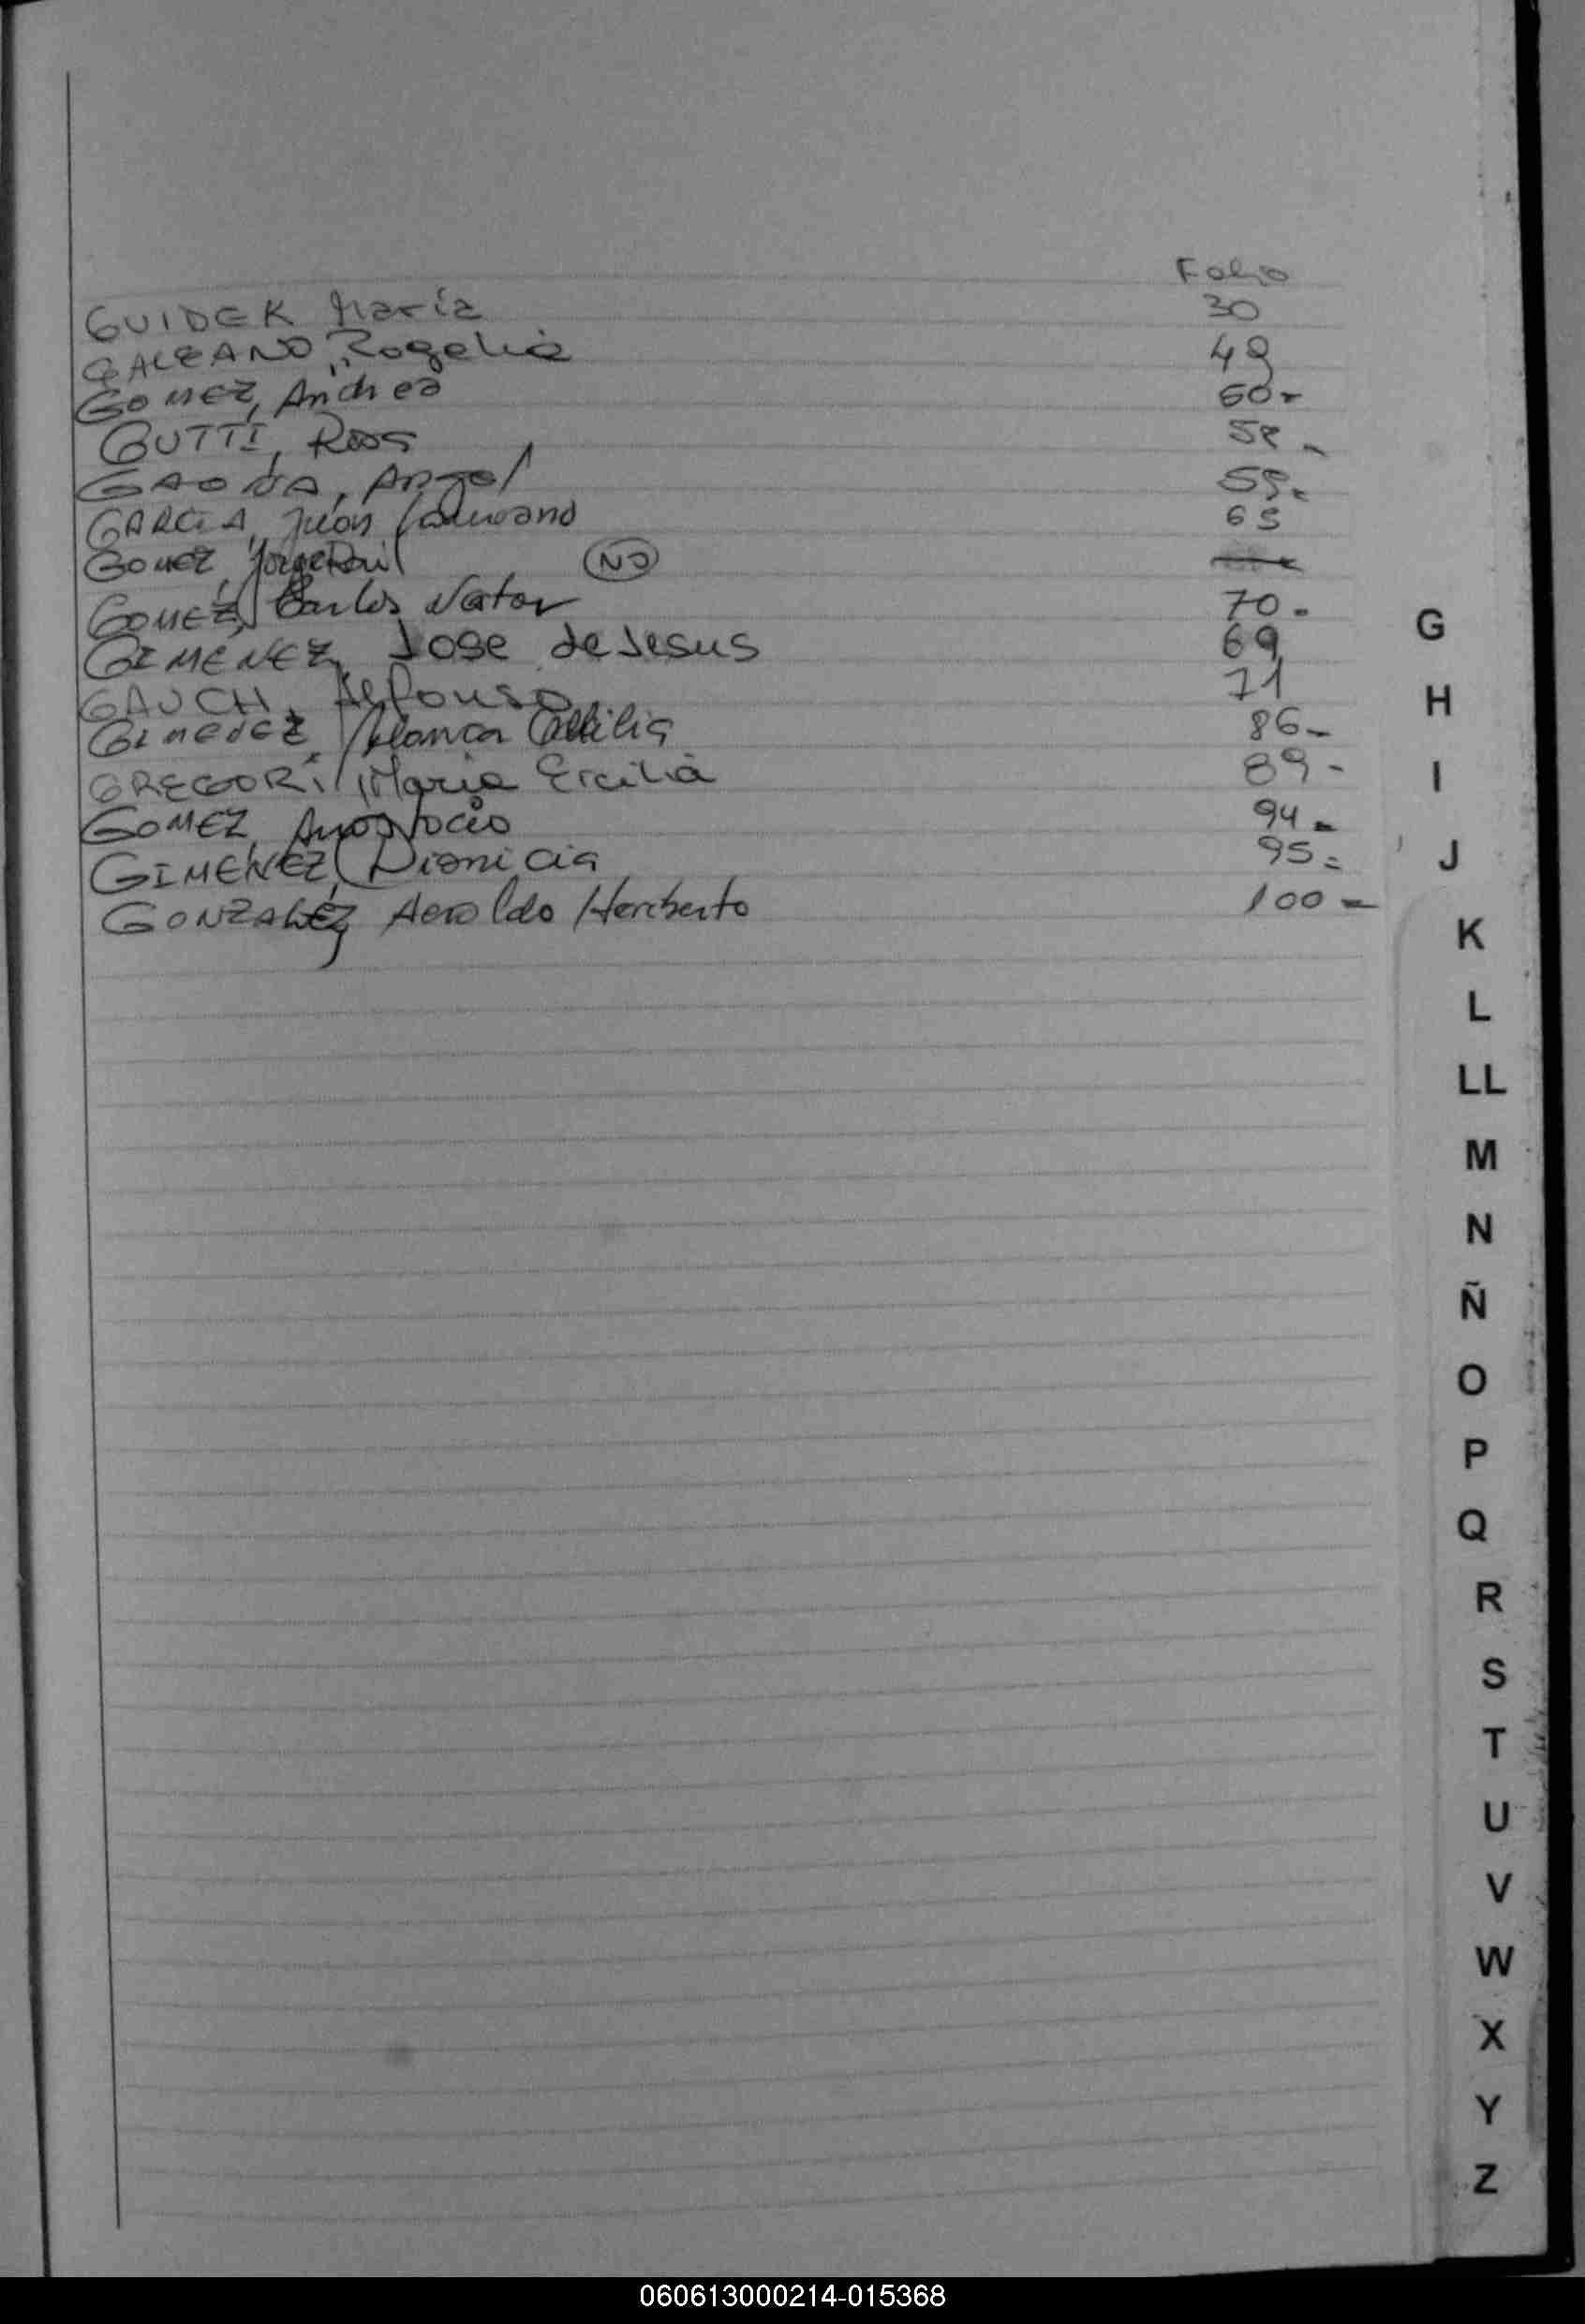 Folio
GUIDEK María 30
GALEANO, Rogelia 49
GOMEZ, Andrea 50-
GUTTI, Rosa 58-
GAONA, Angel 59-
GARCIA, Juan 65
GOMEZ, Jorge Raul NO
GOMEZ, Carlos Nestor 70-
GIMENEZ, Jose de Jesus 69
GAUCH, Alfonso 71
GIMENEZ, Blanca 86-
GREGORI, Maria Ercilia 89-
GOMEZ, 94-
GIMENEZ, Dionicia 95-
GONZALEZ, Aeroldo Heriberto 100-
G
H
I
J
K
L
LL
M
N
Ñ
O
P
Q
R
S
T
U
V
W
X
Y
Z
060613000214-015368